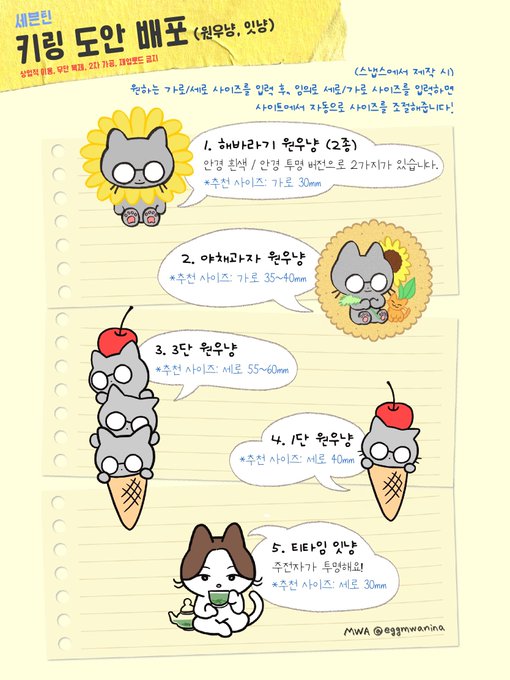 세븐틴
키링 도안 배포 (원우냥, 잇냥)
상업적 이용, 무단 복제, 2차 가공, 재업로드 금지
(스냅스에서 제작 시)
원하는 가로/세로 사이즈를 입력 후, 임의로 세로/가로 사이즈를 입력하면
사이트에서 자동으로 사이즈를 조절해줍니다!
1. 해바라기 원우냥 (2종)
안경 흰색 / 안경 투명 버전으로 2가지가 있습니다.
*추천 사이즈: 가로 30mm
2. 야채과자 원우냥
*추천 사이즈: 가로 35~40mm
3. 3단 원우냥
*추천 사이즈: 세로 55~60mm
4. 1단 원우냥
*추천 사이즈: 세로 40mm
5. 티타임 잇냥
주전자가 투명해요!
*추천 사이즈: 세로 30mm
MWA @eggmwanina